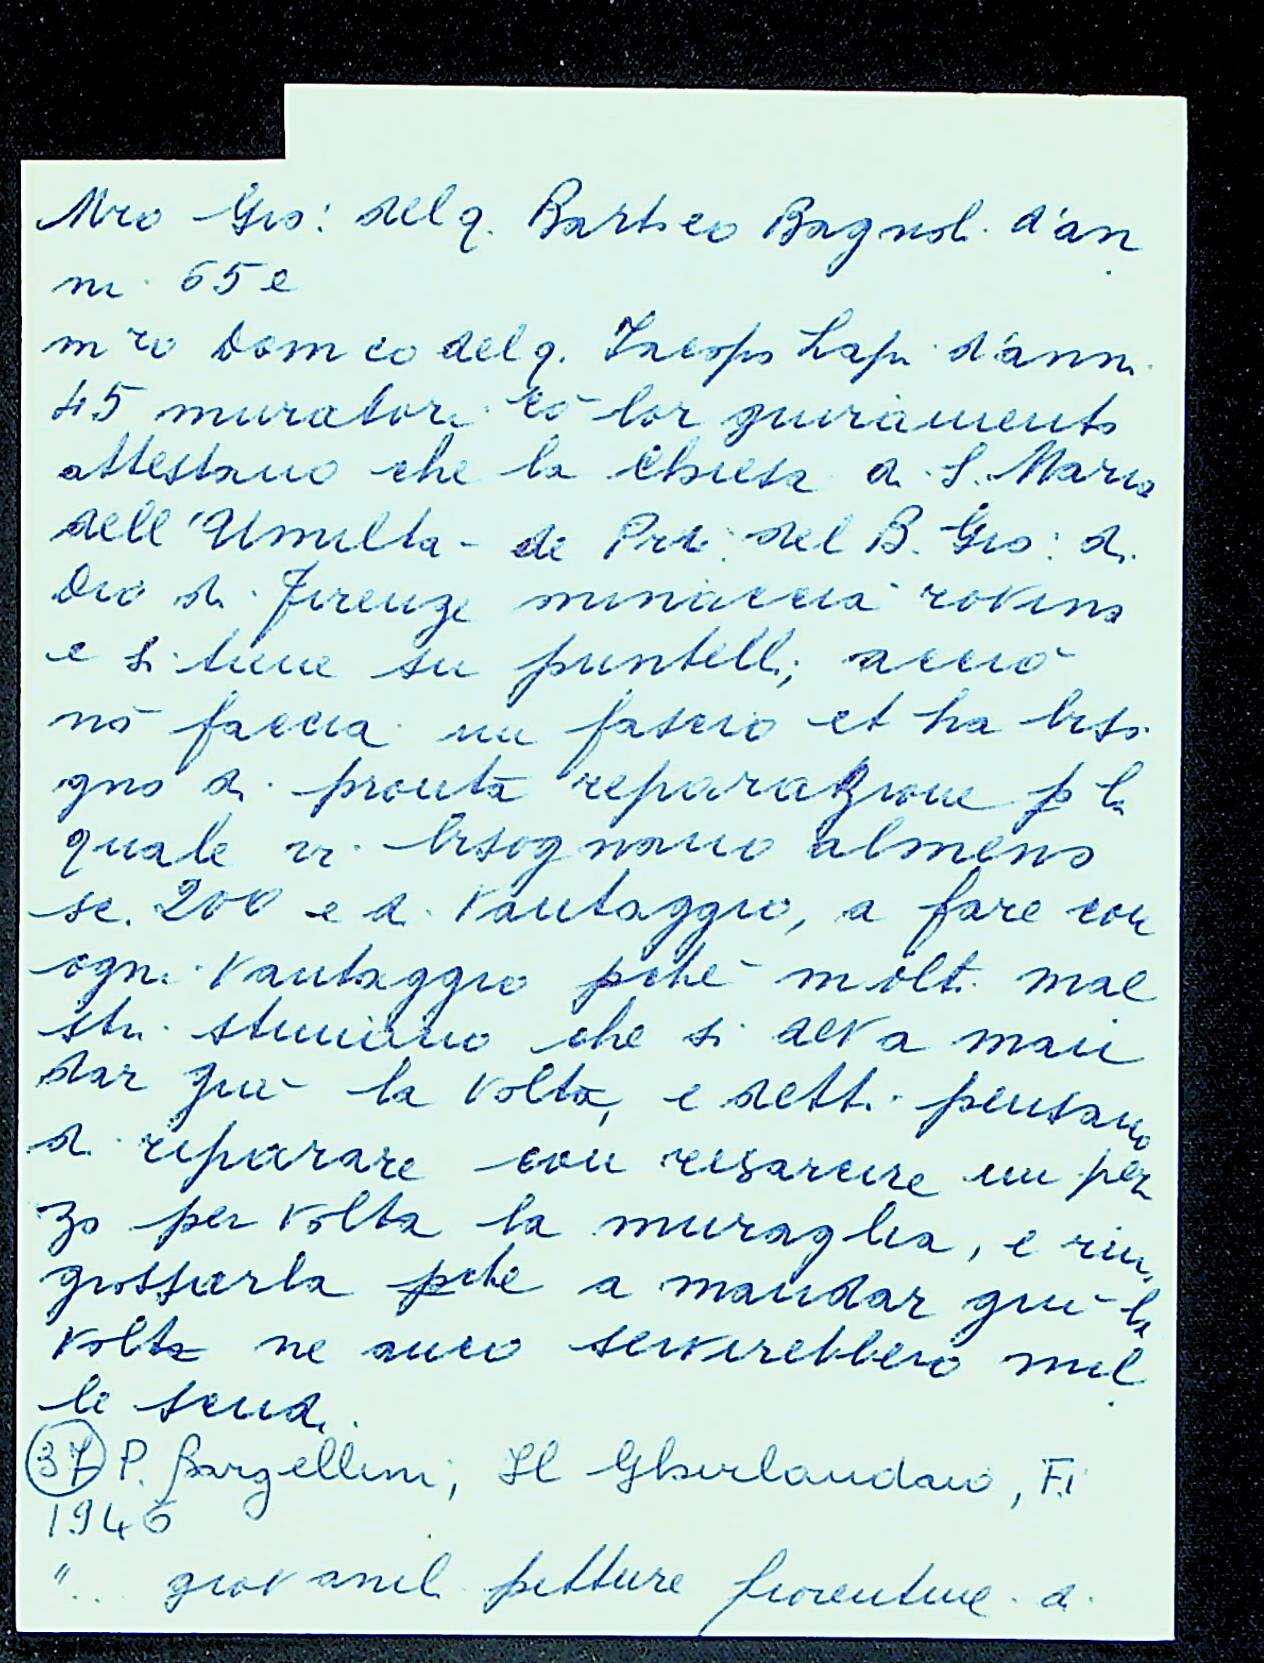 Mro Gio: del q. Barteo Bagnoli d'an
ni 65 e
mro Domco del q. Jacopo Lapi d'anni
45 muratori cō lor giuramento
attestano che la Chiesa di S. Maria
dell'Umilta- de Pri: del B. Gio: di
Dio di Firenze minaccia rovina
e si tiene su puntelli, acciò
nō faccia un fascio et ha biso
gno di pronta reparazione p la
quale vi bisognano almeno
sc. 200 e di vantaggio, a fare con
ogni vantaggio pché molti mae
stri stimano che si deva man
dar giù la volta, e detti pensano
di riparare con risarcire un pez
zo per volta la muraglia, e rin
grossarla pche a mandar giù la
volta ne anco servirebbero mil
le scudi.
37 P. Bargellini, Il Ghirlandaio, Fi
1946
".. giovanili pitture fiorentine di